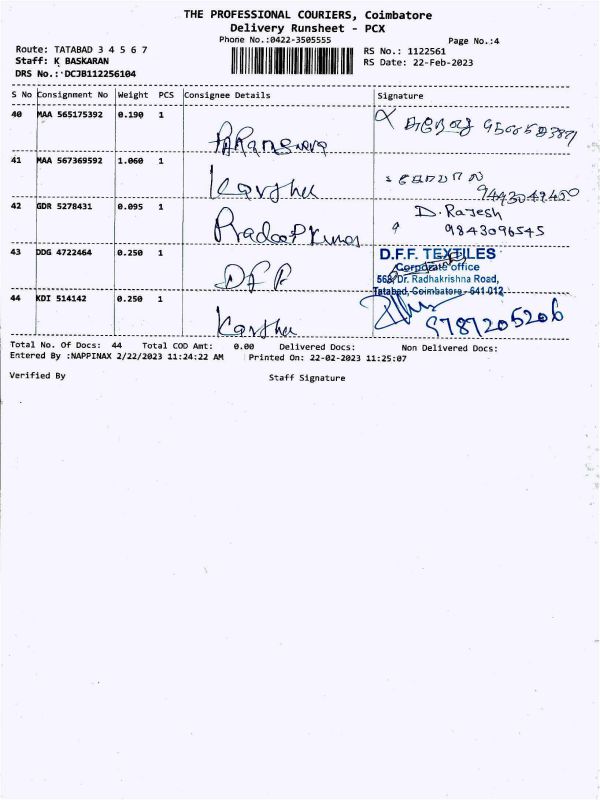 THE PROFESSIONAL COURIERS, Coimbatore
Delivery Runsheet - PCX
Phone No.:0422-3505555
Page No.:4
Route: TATABAD 3 4 5 6 7
RS No.: 1122561
Staff: K BASKARAN
RS Date: 22-Feb-2023
DRS No.: DCJB112256104
S No Consignment No Weight PCS Consignee Details Signature
40 MAA 565175392 0.190 1
41 MAA 567369592 1.060 1 Karthu
9443049450
42 GDR 5278431 0.095 1 Pradeep Kumar D. Rajesh
9843096545
43 DDG 4722464 0.250 1 DFF D.F.F. TEXTILES
Corporate office
568, Dr. Radhakrishna Road,
Tatabad, Coimbatore - 641 012
44 KDI 514142 0.250 1 Karthu
9789205206
Total No. Of Docs: 44 Total COD Amt: 0.00 Delivered Docs: Non Delivered Docs:
Entered By :NAPPINAX 2/22/2023 11:24:22 AM Printed On: 22-02-2023 11:25:07
Verified By Staff Signature